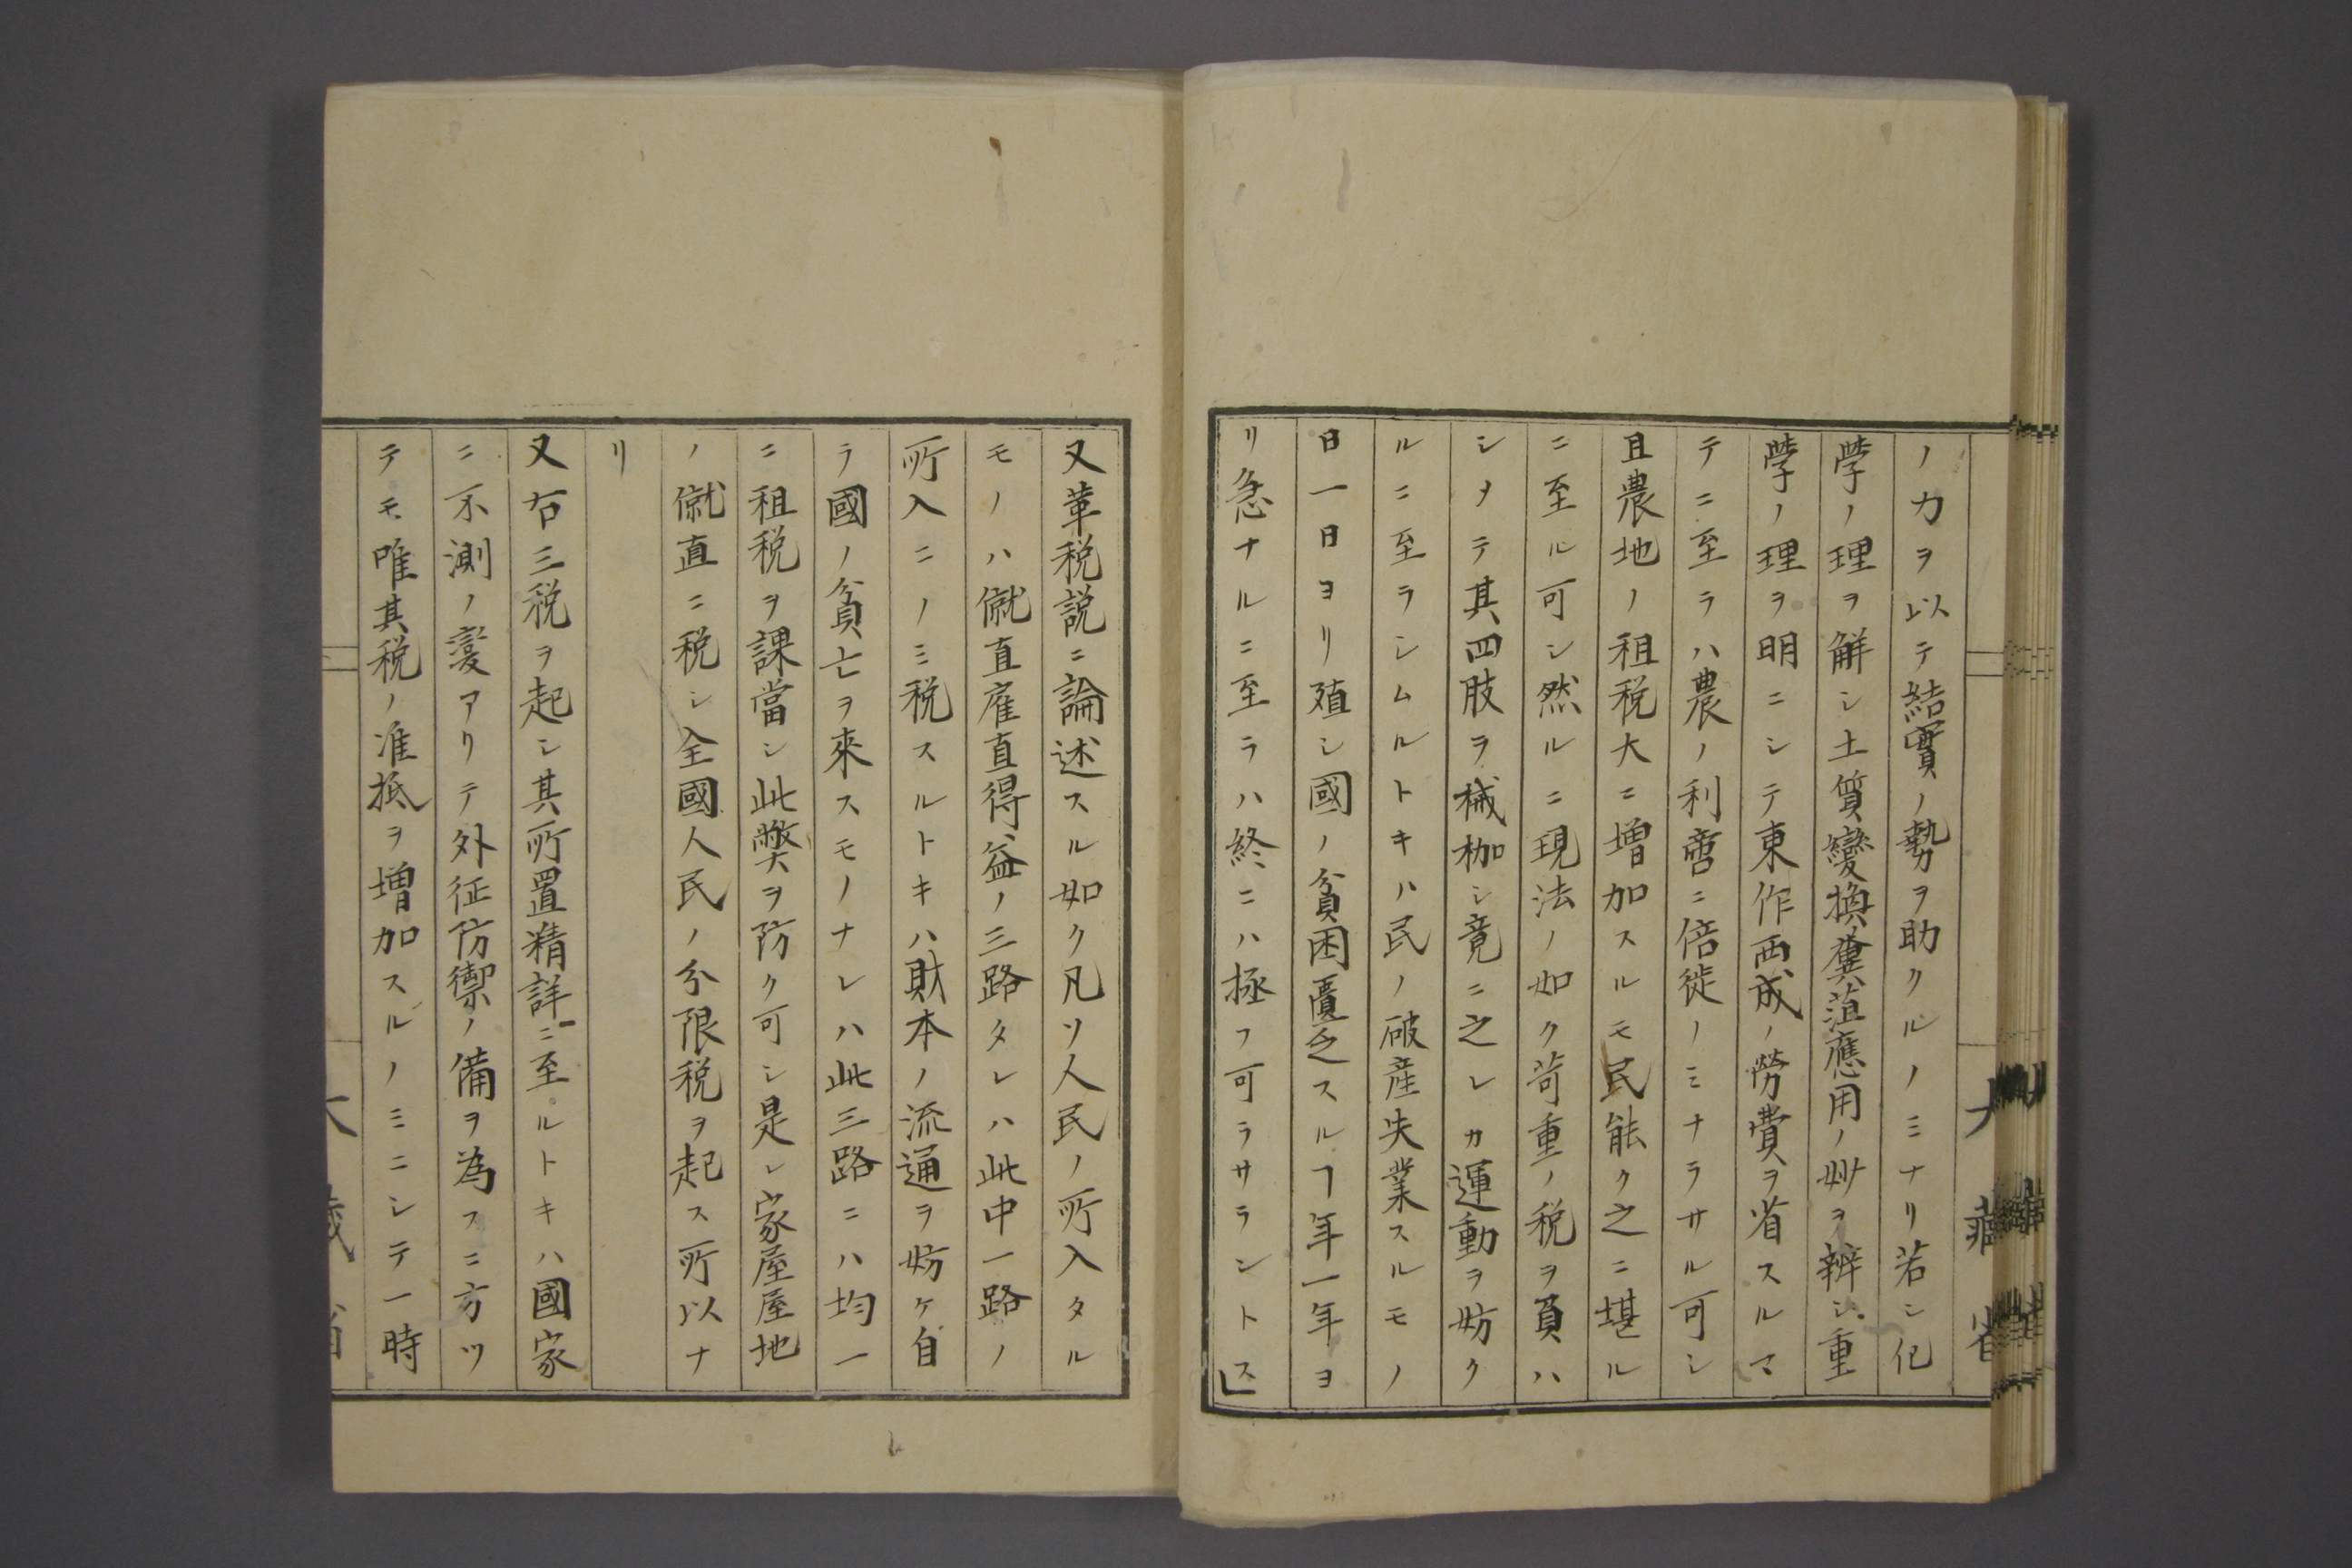 ノ力ヲ以テ結實ノ勢ヲ助クルノミナリ若シ化
學ノ理ヲ解シ土質變換糞苴應用ノ妙ヲ辨シ重
學ノ理ヲ明ニシテ東作西成ノ勞費ヲ省スルマ
テニ至ラハ農ノ利啻ニ倍徙ノミナラサル可シ
且農地ノ租税大ニ增加スルモ民能ク之ニ堪ル
ニ至ル可シ然ルニ現法ノ如ク苛重ノ税ヲ負ハ
シメテ其四肢ヲ械枷シ竟ニ之レカ運動ヲ妨ク
ルニ至ラシムルトキハ民ノ破産失業スルモノ
日一日ヨリ殖シ國ノ貧困匱乏スルヿ年一年ヨ
リ急ナルニ至ラハ終ニハ極フ可ラサラントス」
大藏省
又革税説ニ論述スル如ク凡ソ人民ノ所入タル
モノハ僦直雇直得益ノ三路タレハ此中一路ノ
所入ニノミ税スルトキハ財本ノ流通ヲ妨ケ自
ラ國ノ貧亡ヲ來スモノナレハ此三路ニハ均一
ニ租税ヲ課當シ此弊ヲ防ク可シ是レ家屋屋地
ノ僦直ニ税シ全國人民ノ分限税ヲ起ス所以ナ
リ
又右三税ヲ起シ其所置精詳ニ至ルトキハ國家
ニ不測ノ變アリテ外征防禦ノ備ヲ為スニ方ツ
テモ唯其税ノ准抵ヲ増加スルノミニシテ一時
大藏省